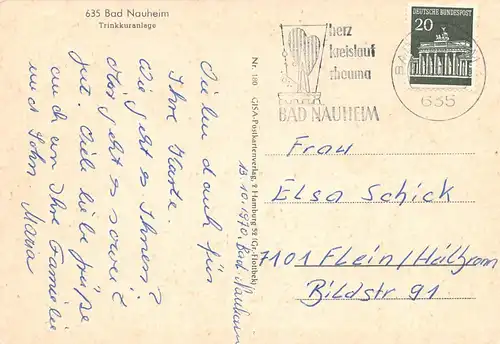 635 Bad Nauheim
Trinkkuranlage
13.10.1970. Bad-Nauheim
Vielen dank für
Ihre Karte.
Wie geht es Ihnen?
Mir geht es soweit
gut. Viele liebe grüße
auch an Ihre Familie
und Sohn Maria
Nr. 180 GISA-Postkartenverlag, 2 Hamburg 52 (Gr. Flottbek)
herz
kreislauf
rheuma
BAD NAUHEIM
DEUTSCHE BUNDESPOST
20
635
Frau
Elsa Schick
7101 Flein/Heilbronn
Bildstr 91